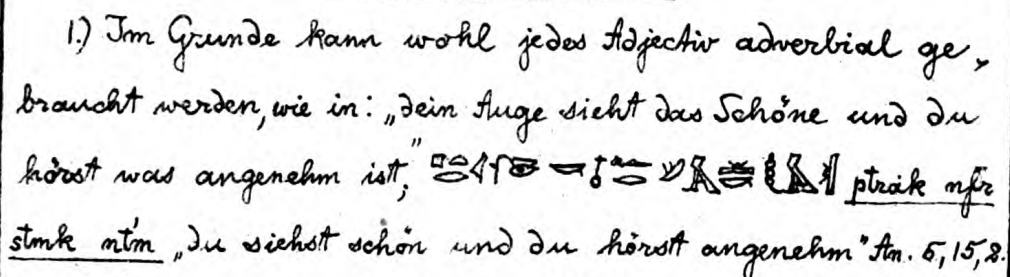 1.) Im Grunde kann wohl jedes Adjectiv adverbial ge-
braucht werden, wie in: „dein Auge sieht das Schöne und du
hörst was angenehm ist," ptrȧk nfr
stmk nt'm „du siehst schön und du hörst angenehm" An. 5,15,2.